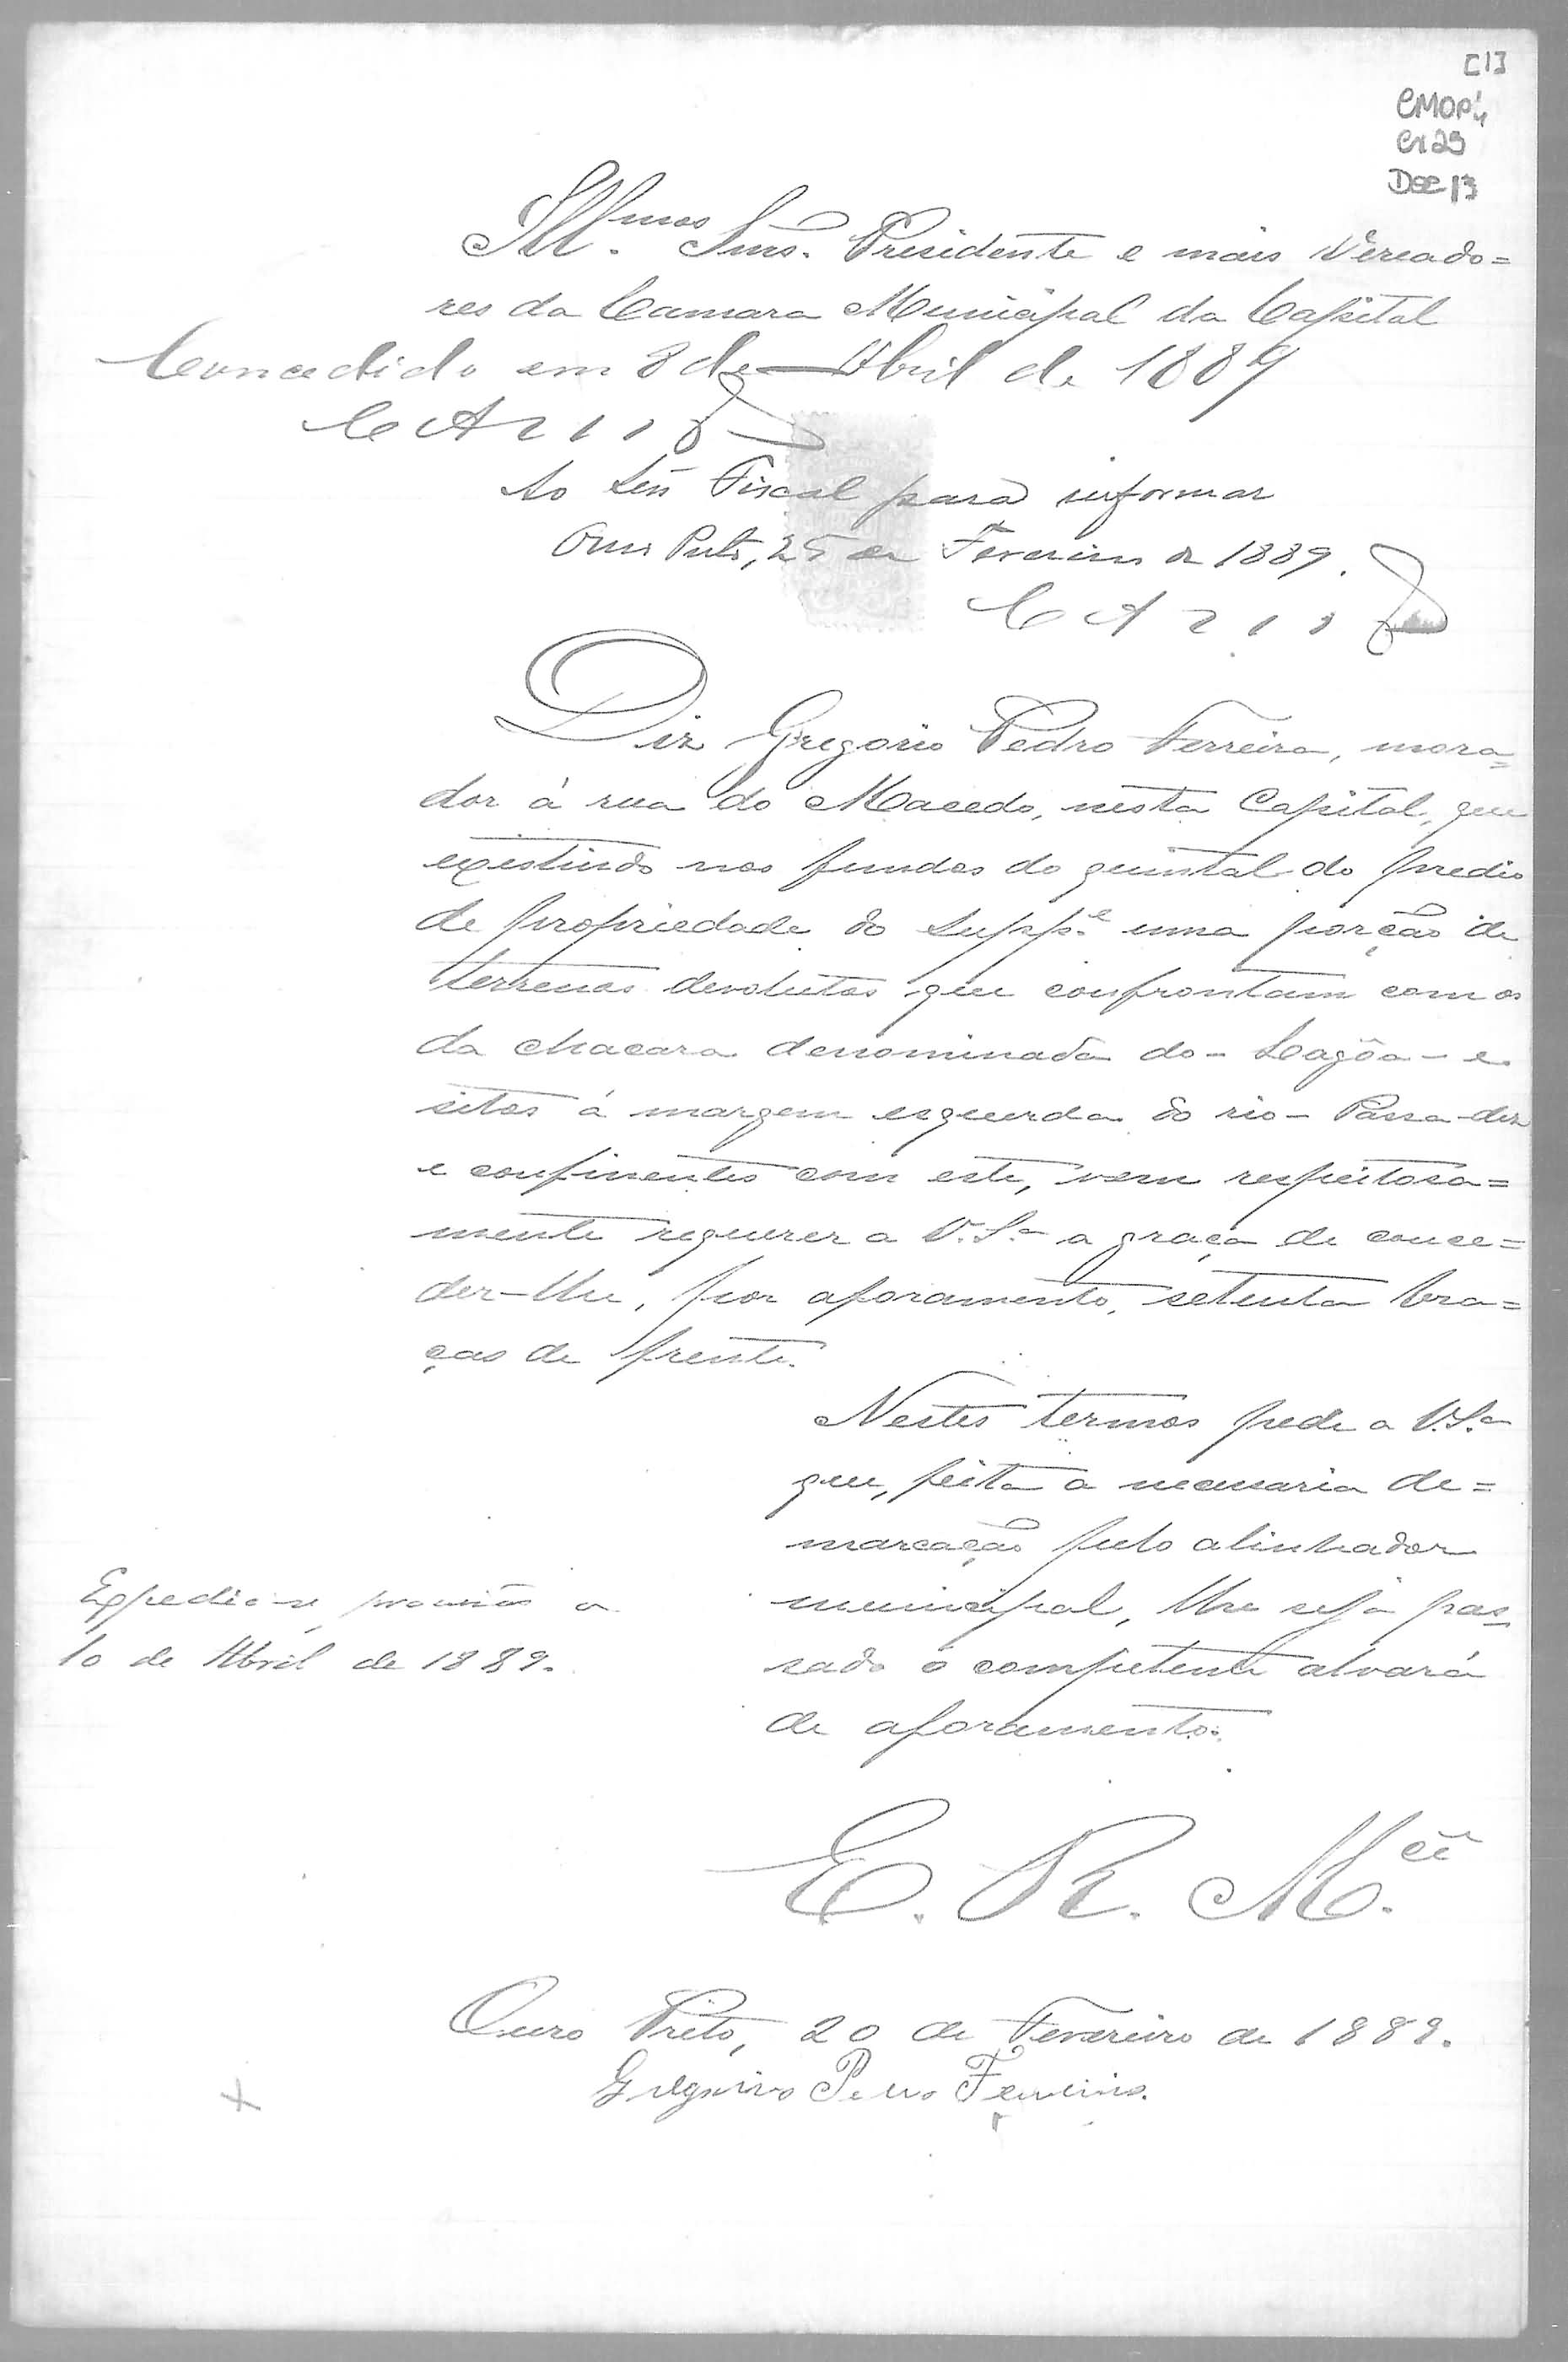 [13
CMOP'4
Cx 29
Doc 13
Ill.mos Snrs. Presidente e mais Vereado=
res da Camara Municipal da Capital
Concedido em 8 de Abril de 1889
Ao Snr Fiscal para informar
Ouro Preto, 25 de Fevereiro de 1889.
Diz Gregorio Pedro Ferreira, mora=
dor á rua do Macedo, nesta Capital, que
existindo nos fundos do quintal do predio
de propriedade do Supp.e uma porção de
terrenos devolutos que confrontam com os
da chacara denominada do - Lagôa - e
sitos á margem esquerda do rio - Passa-dez
e confinentes com este, vem respeitosa=
mente requerer a V.S.a a graça de conce=
der-lhe, por aforamento, setenta bra=
ças de frente.
Nestes termos pede a V.S.a
que, feita a necessaria de=
marcação pelo alinhador
municipal, lhe seja pas=
sado o competente alvará
de aforamento.
Expedio-se provisão a
10 de Abril de 1889.
E. R. M.cê
Ouro Preto, 20 de Fevereiro de 1889.
Gregorio Pedro Ferreira.